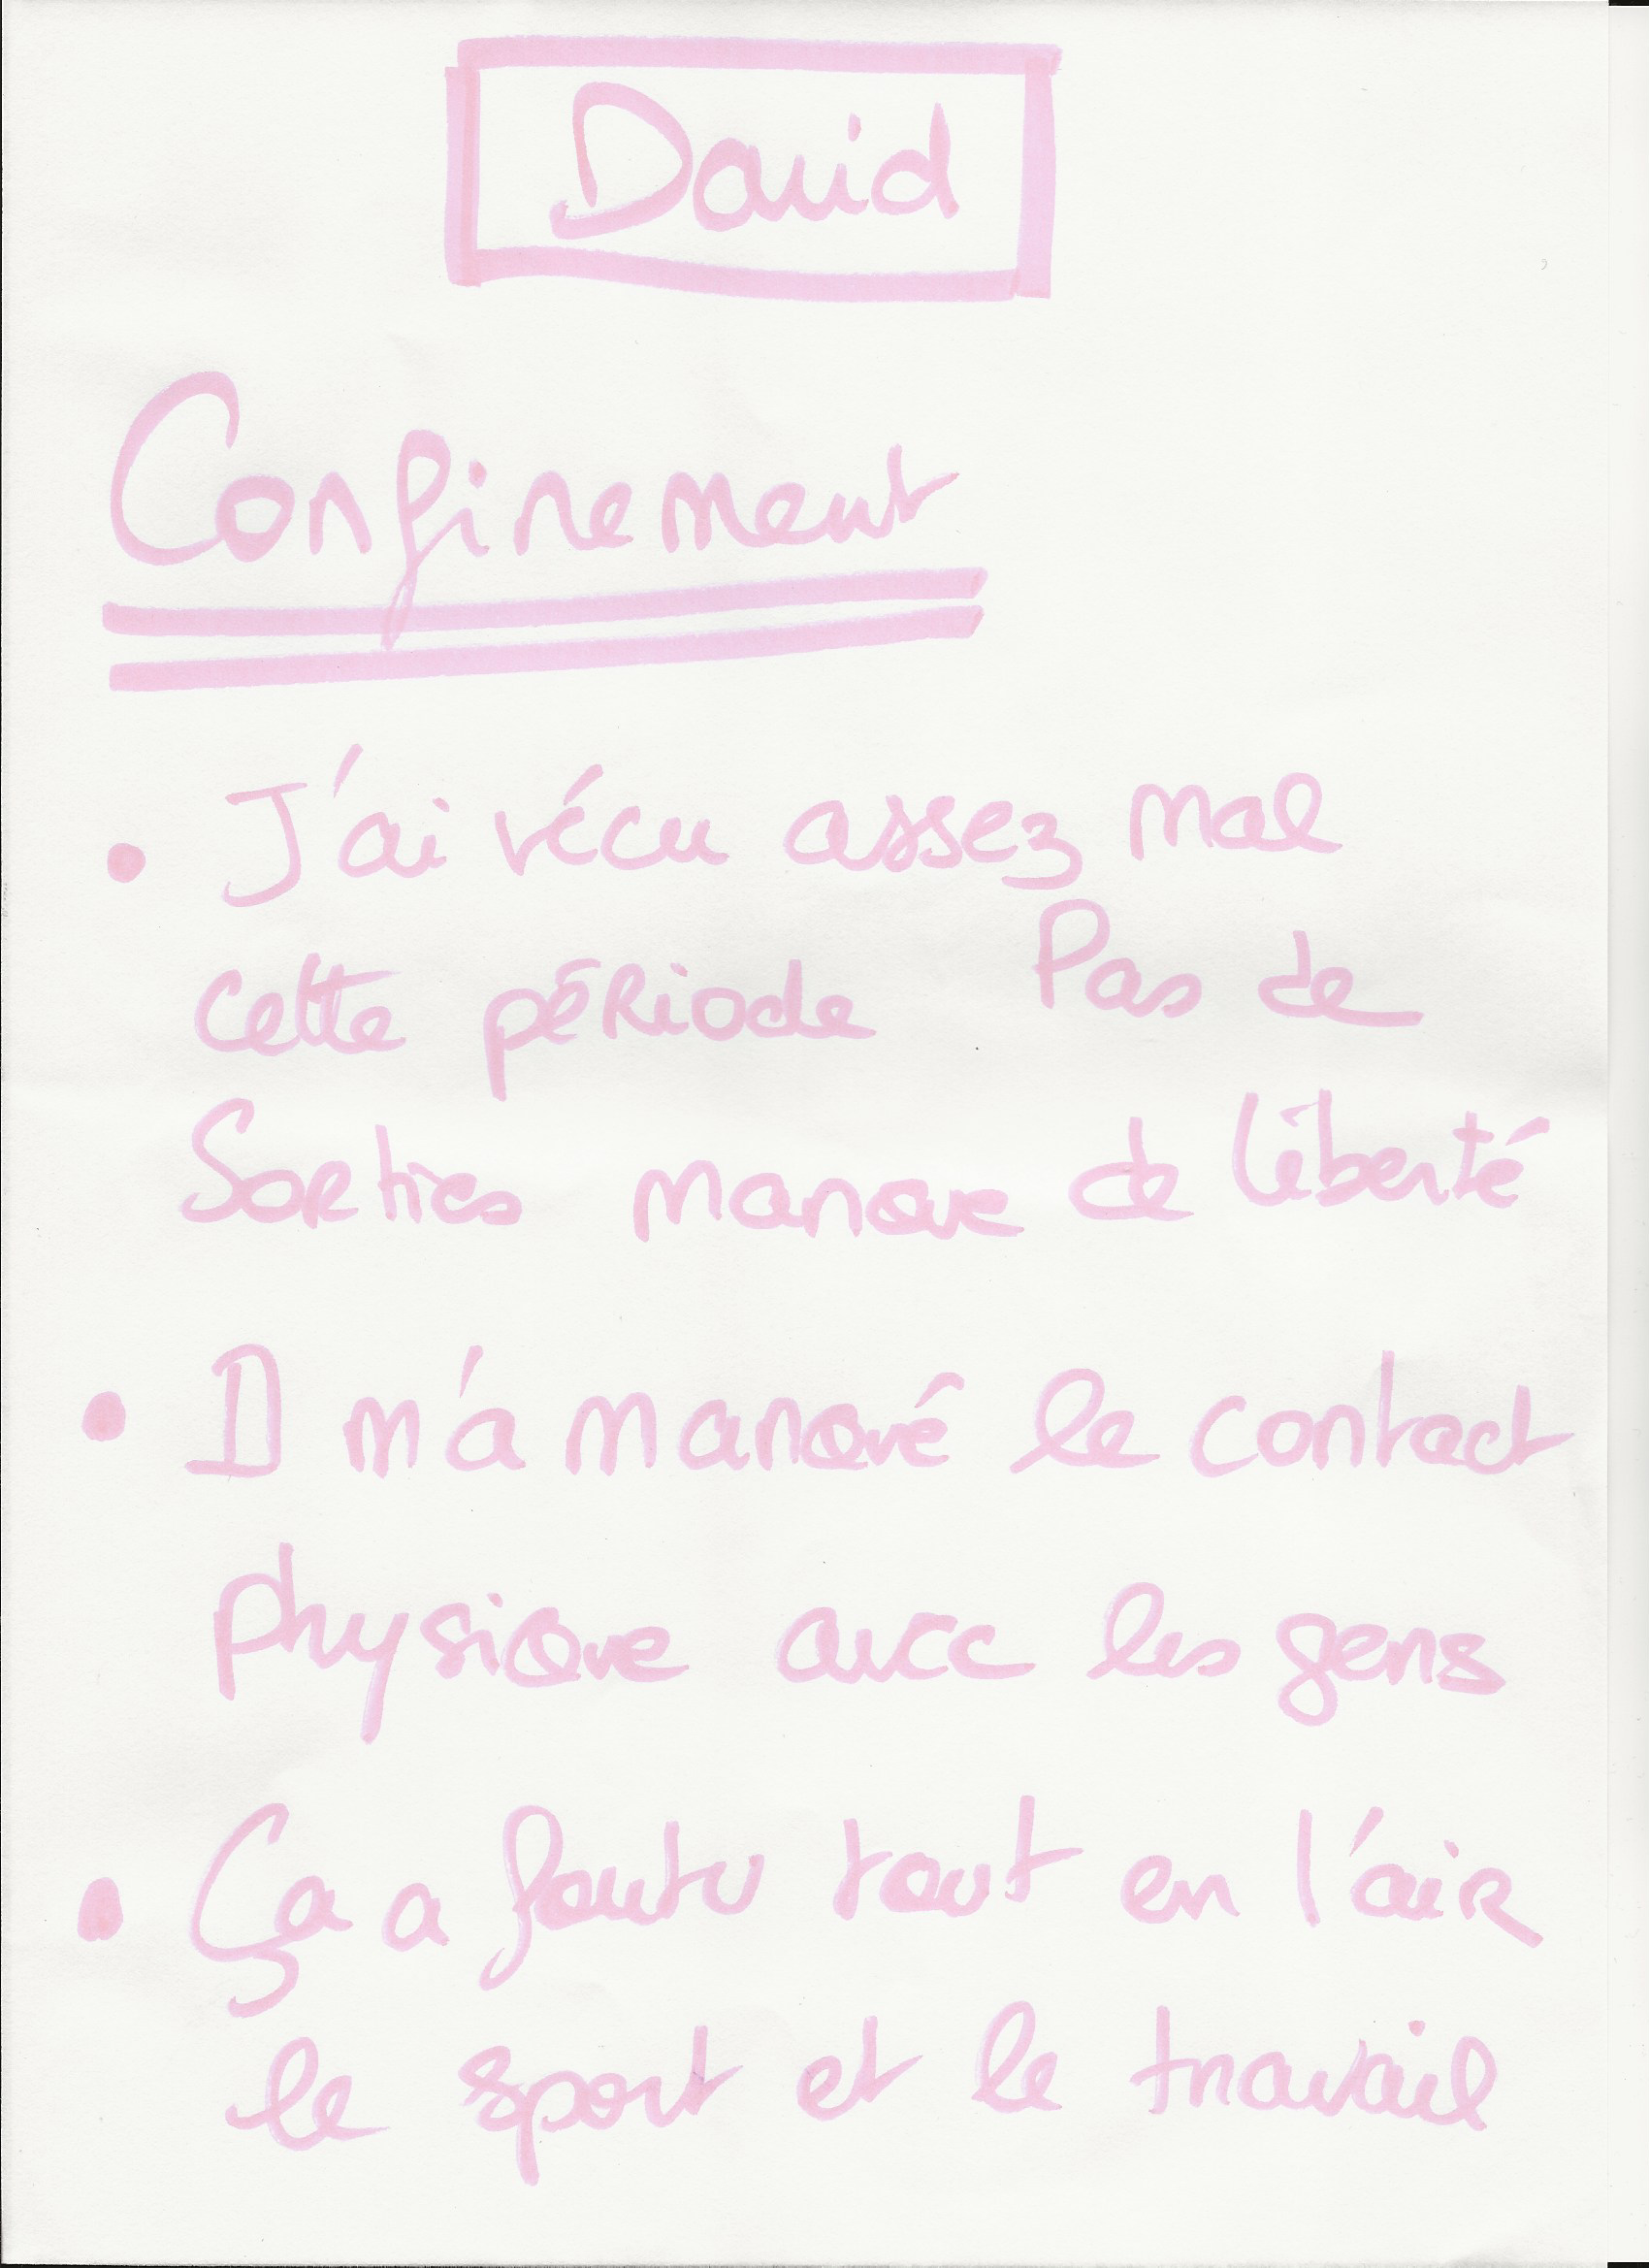 David
Confinement
• J'ai vécu assez mal
cette période Pas de
Sorties manque de liberté
• Il m'a manqué le contact
physique avec les gens
• Ça a foutu tout en l'air
le sport et le travail